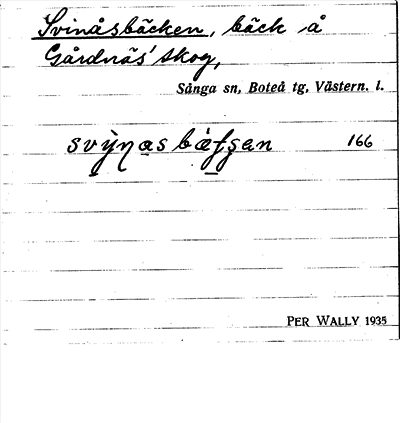 Svinåsbäcken, bäck å
Gårdnäs' skog,
Sånga sn, Boteå tg, Västern. l.
166
PER WALLY 1935